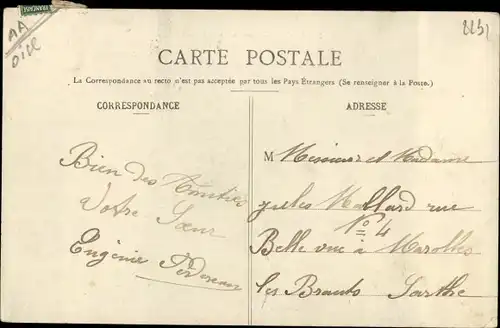 FRANÇAISE
AA
Oise
CARTE POSTALE
La Correspondance au recto n'est pas acceptée par tous les Pays Étrangers (Se renseigner à la Poste.)
CORRESPONDANCE
Bien des Amitiés
Votre Sœur
Eugénie
ADRESSE
M Messieur et Madame
jules Mallard rue
N° 4
Belle vue à Marolles
les Brauts Sarthe